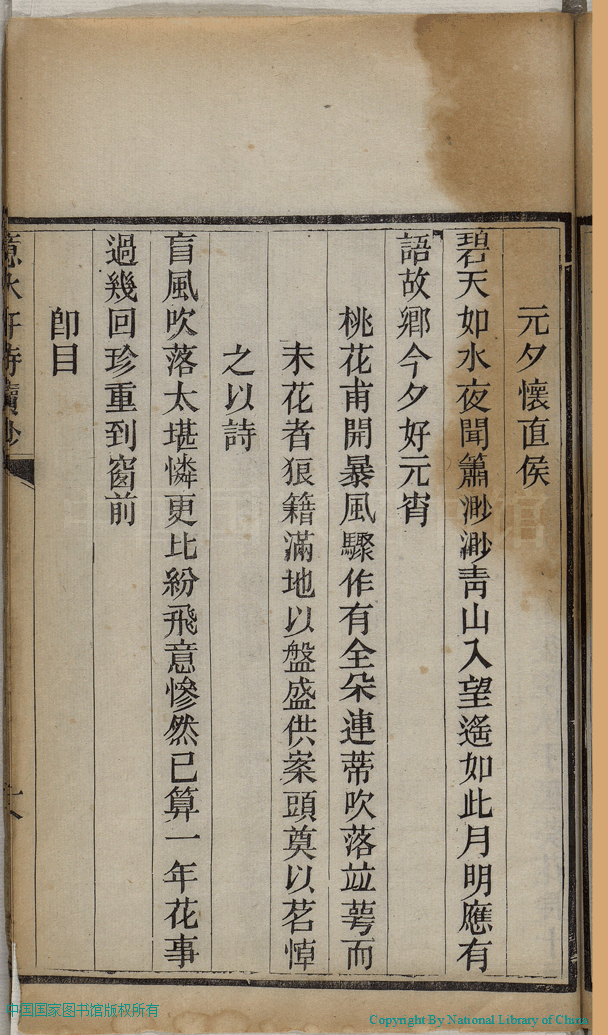 元夕懷直侯
碧天如水夜聞簫渺渺靑山入望遙如此月明應有
語故鄉今夕好元宵
桃花甫開暴風驟作有全朵連蒂吹落竝萼而
未花者狼籍滿地以盤盛供案頭奠以茗悼
之以詩
盲風吹落太堪憐更比紛飛意慘然已算一年花事
過幾回珍重到窗前
卽目
中国国家图书馆版权所有
Copyright By National Library of China